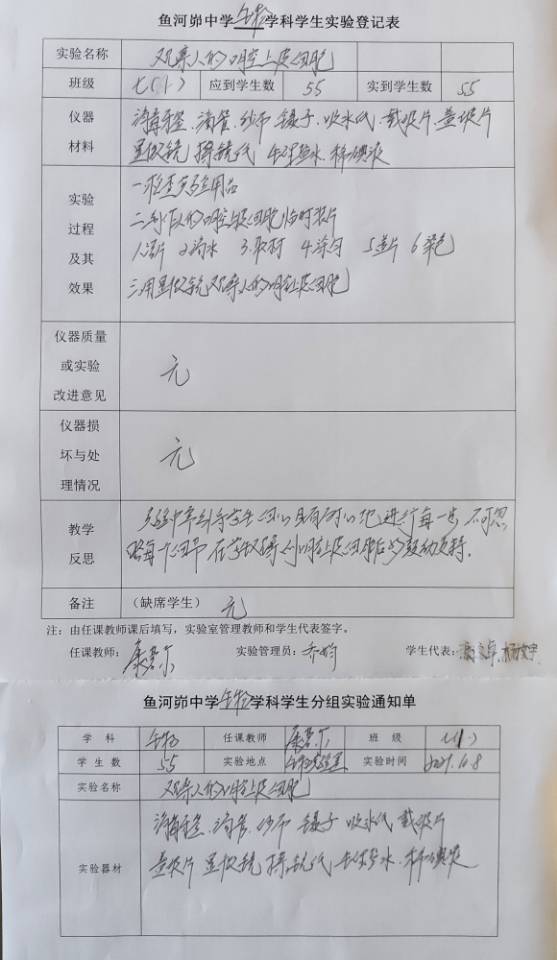 鱼河峁中学生物学科学生实验登记表
实验名称 观察人的口腔上皮细胞
班级 七(1) 应到学生数 55 实到学生数 55
仪器 消毒牙签、滴管、纱布 镊子、吸水纸、载玻片、盖玻片
材料 显微镜 擦镜纸 生理盐水、稀碘液
实验 一检查实验用品
过程 二制作人的口腔上皮细胞临时装片
及其 1.擦片 2.滴水 3.取材 4.涂匀 5.盖片 6.染色
效果 三用显微镜观察人的口腔上皮细胞
仪器质量
或实验 无
改进意见
仪器损
坏与处 无
理情况
教学 实验中要引导学生细心且有耐心地进行每一步,不可忽
反思 略每个细节 在学生观察到口腔上皮细胞后
备注 (缺席学生) 无
注:由任课教师课后填写,实验室管理教师和学生代表签字。
任课教师: 实验管理员:乔 学生代表:
鱼河峁中学生物学科学生分组实验通知单
学 科 生物 任课教师 班 级 七(1)
学 生 数 55 实验地点 生物实验室 实验时间
实验名称 观察人的口腔上皮细胞
消毒牙签、滴管、纱布 镊子 吸水纸 载玻片
实验器材 盖玻片 显微镜 擦镜纸 生理盐水、稀碘液